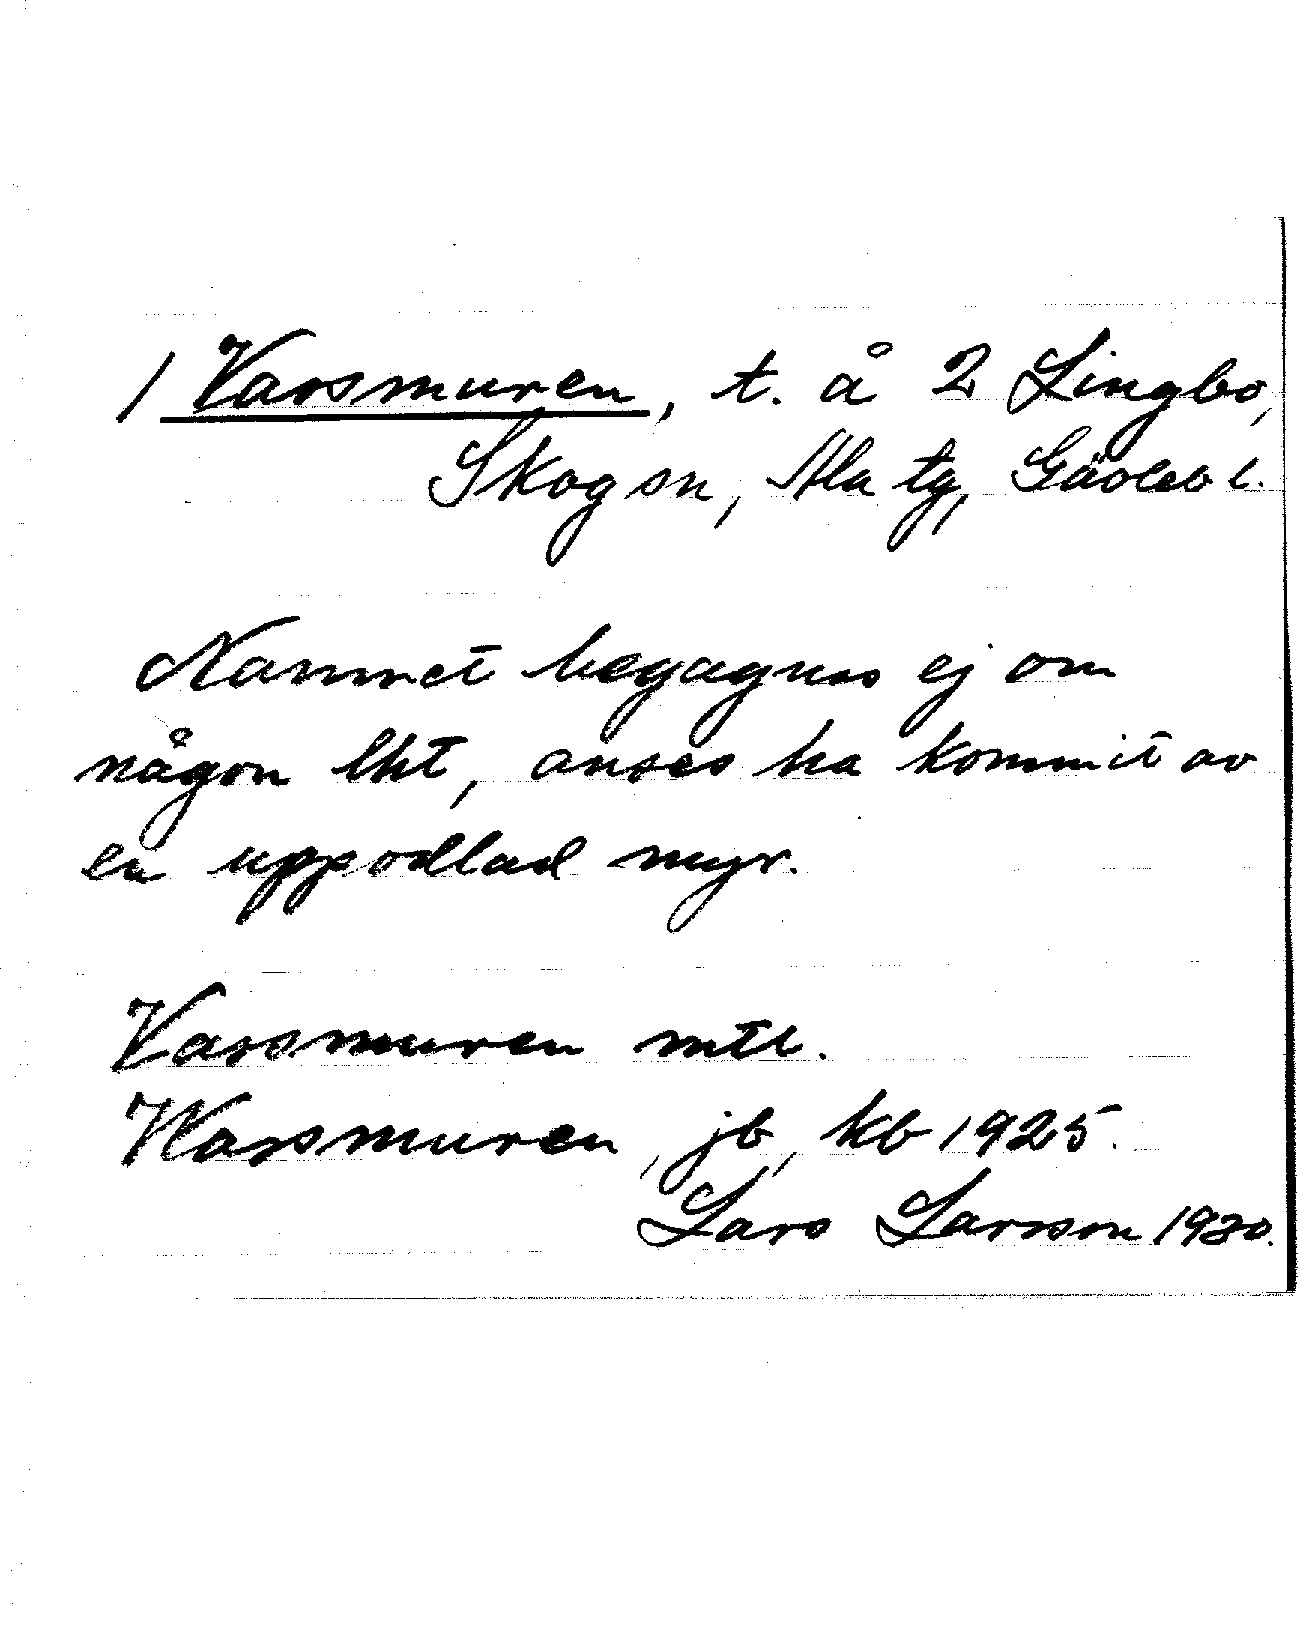 / Vassmuren, t. å 2 Lingbo,
Skog sn, Ala tg, Gävleb l.
Namnet begagnas ej om
någon lht, anses ha kommit av
en uppodlad myr.
Vassmuren mtl.
Wassmuren, jb, kb 1925.
Lars Larsson 1930.